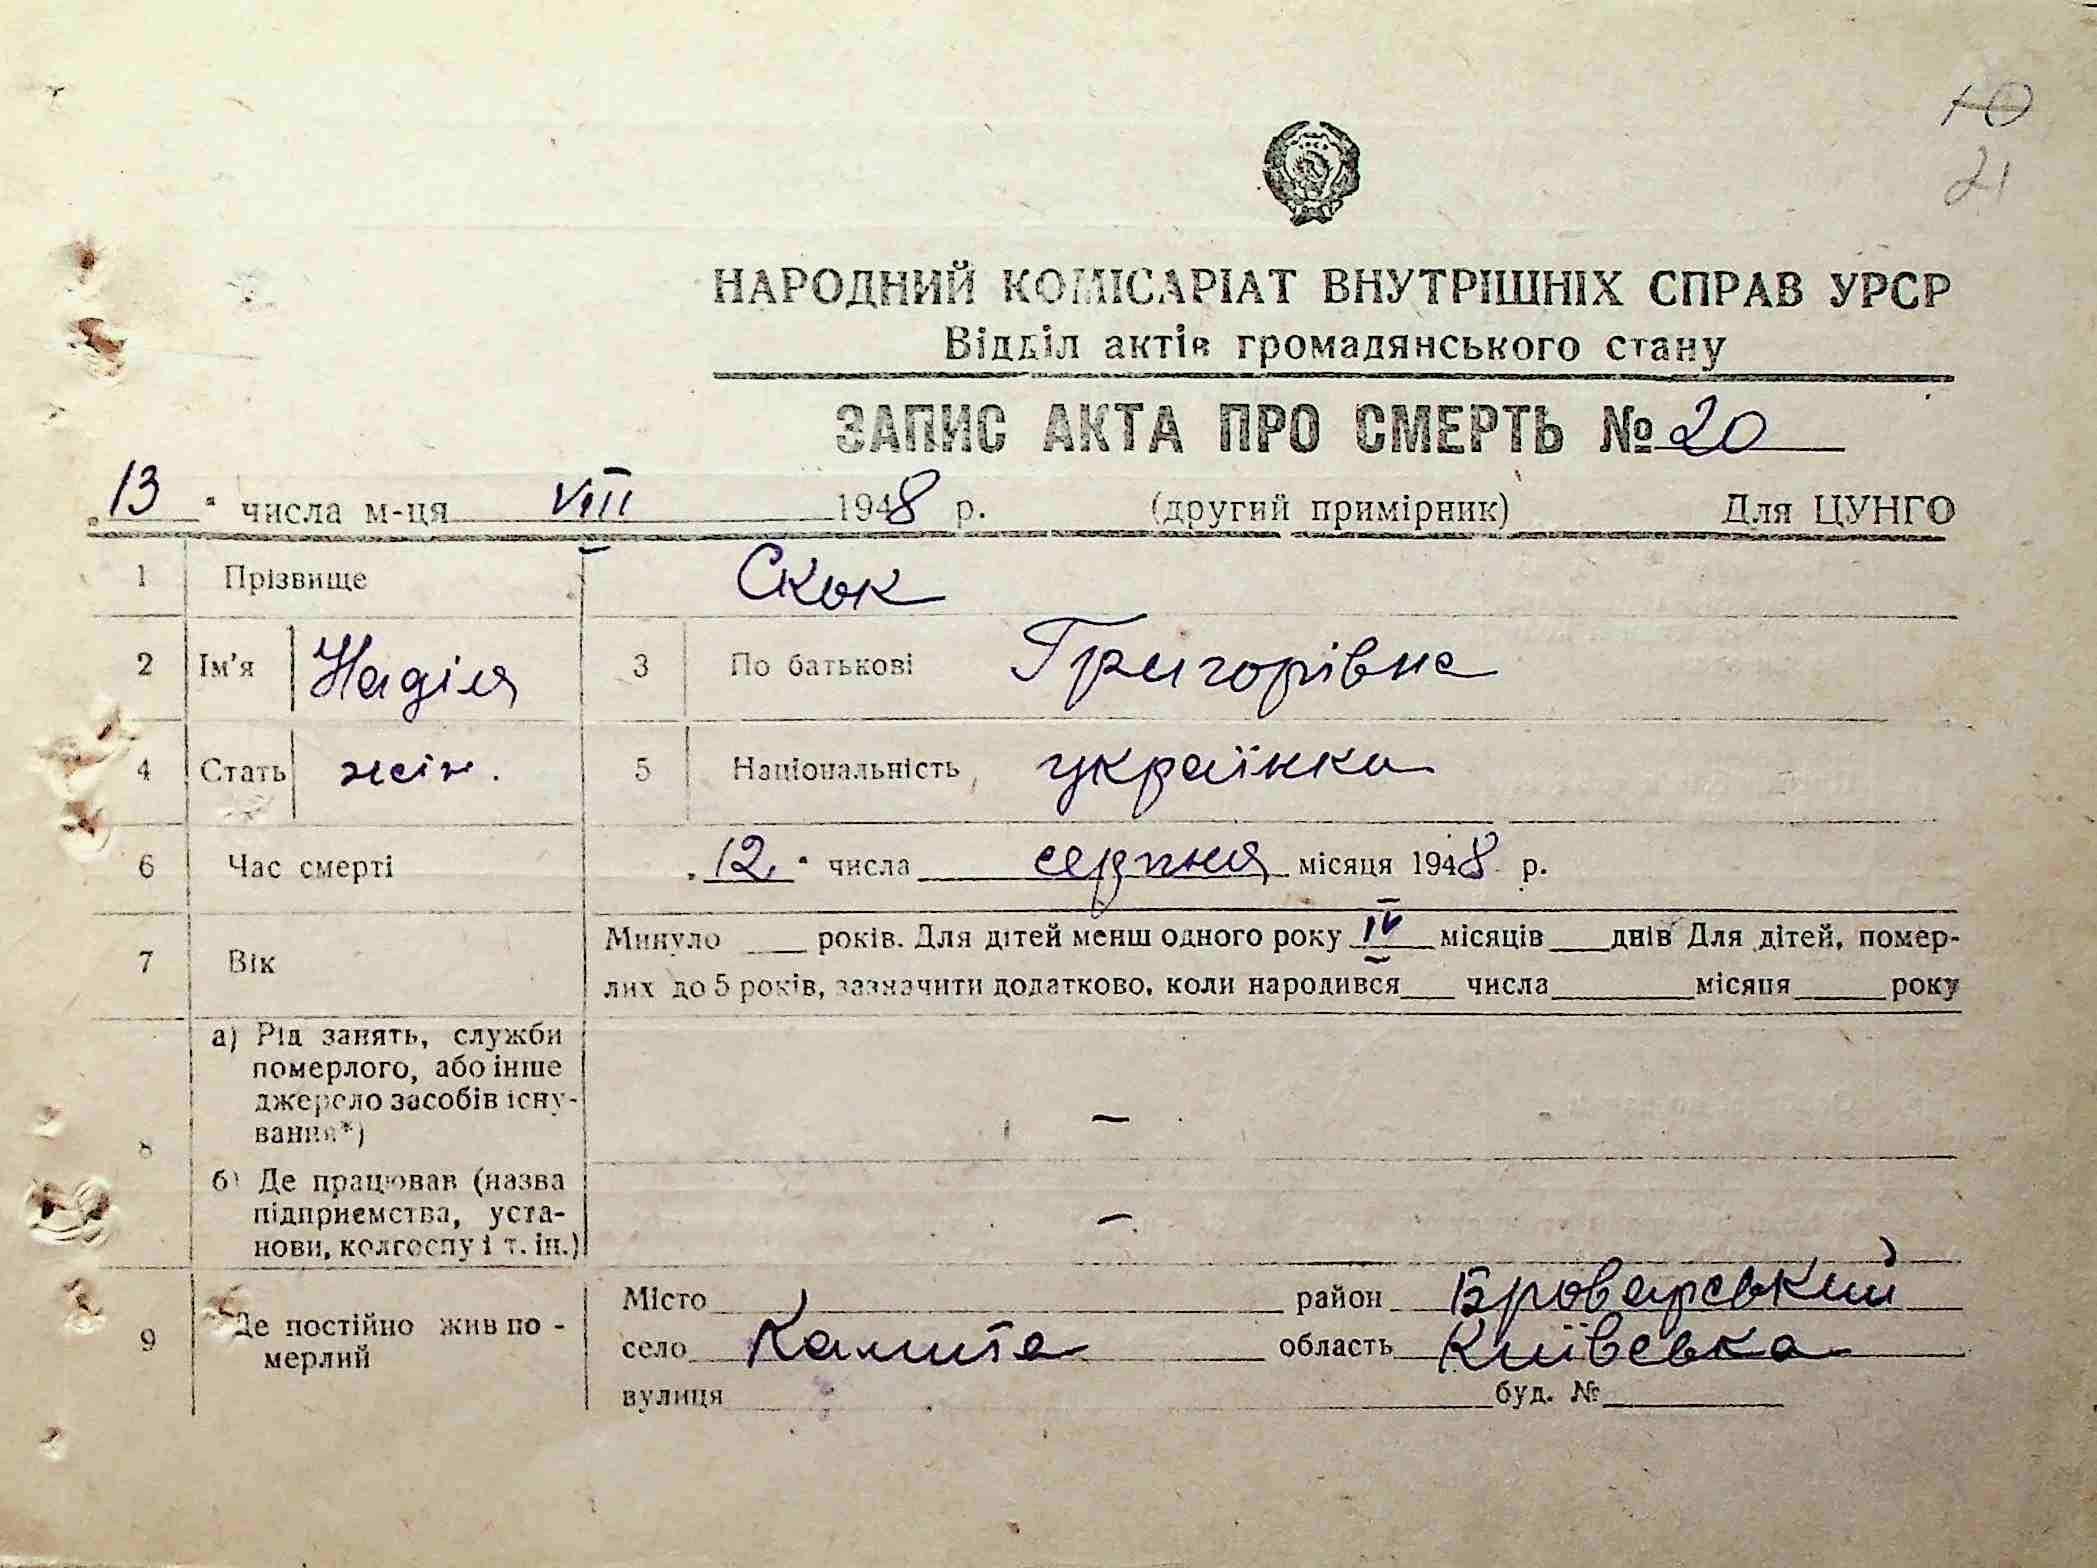 10
21
НАРОДНИЙ КОМІСАРІАТ ВНУТРІШНІХ СПРАВ УРСР
Відділ актів громадянського стану
ЗАПИС АКТА ПРО СМЕРТЬ № 20
„13“ числа м-ця VIII 1948 р. (другий примірник) Для ЦУНГО
1 Прізвище Скок
2 Ім'я Надія 3 По батькові Григорівна
4 Стать жін. 5 Національність українка
6 Час смерті „12“ числа серпня місяця 1948 р.
7 Вік Минуло ___ років. Для дітей менш одного року IV місяців ___ днів Для дітей, помер-
лих до 5 років, зазначити додатково, коли народився ___ числа ___ місяця ___ року
8 а) Рід занять, служби
померлого, або інше
джерело засобів існу-
вання*) —
б) Де працював (назва
підприємства, уста-
нови, колгоспу і т. ін.) —
9 Де постійно жив по-
мерлий
Місто ___ район Броварський
село Калита область Київська
вулиця ___ буд. № ___